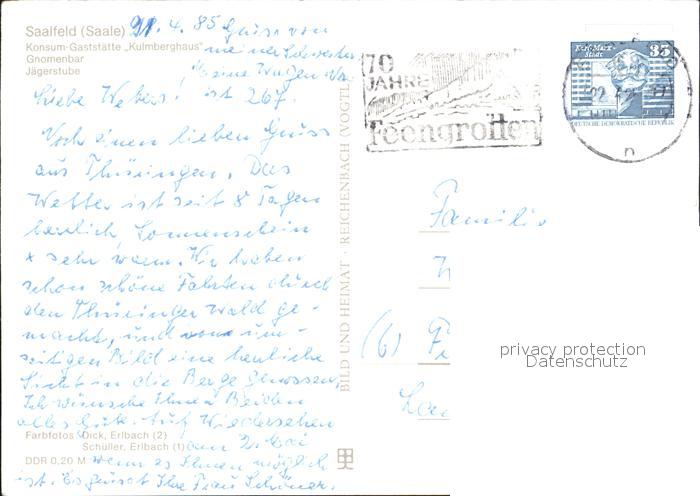 Saalfeld (Saale)
Konsum-Gaststätte „Kulmberghaus"
Gnomenbar
Jägerstube
21.4.85 Gruss von
meiner Schwester
Meine Wagen Nr.
ist 267.
Liebe Weters!
Noch einen lieben Gruss
aus Thüringen. Das
Wetter ist seit 8 Tagen
herrlich, Sonnenschein
+ sehr warm. Wir haben
schon schöne Fahrten durch
den Thüringer Wald ge-
macht, und vom um-
seitigen Bild eine herrliche
Sicht in die Berge genossen.
Ich wünsche Ihnen Beiden
alles Gute. Auf Wiedersehen
am 2. Mai
wenn es Ihnen möglich
ist. Es grüsst Ihre Frau Schöner.
Farbfotos: Dick, Erlbach (2)
Schüller, Erlbach (1)
DDR 0,20 M
BILD UND HEIMAT · REICHENBACH (VOGTL
70
JAHRE
feengrotten
Karl-Marx-
Stadt
35
DEUTSCHE DEMOKRATISCHE REPUBLIK
n
Familie
(6)
privacy protection
Datenschutz